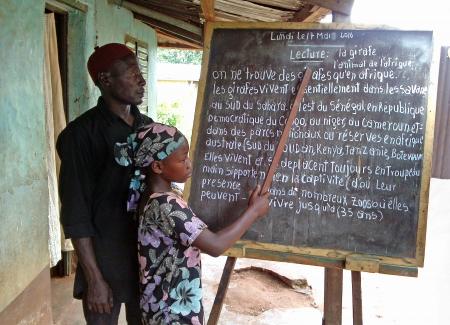 Lundi Le 17 Mai 2016
Lecture: la girafe
l'animal de l'afrique.
on ne trouve des girafes qu'en afrique.
les girafes vivent essentiellement dans les savane
au Sud du Sahara, à l'est du Sénégal en Republique
Democratique du Congo, au niger, au Cameroun et
dans des parcs nationaux ou réserves en afrique
australe (Sud du Soudan, Kenya, Tanzanie, Botswana
Elles vivent et se deplacent toujours en troupeau
main Supporte en la Captivité (d'où Leur
presence dans de nombreux zoos où elles
peuvent vivre jusqu'à (35 ans)